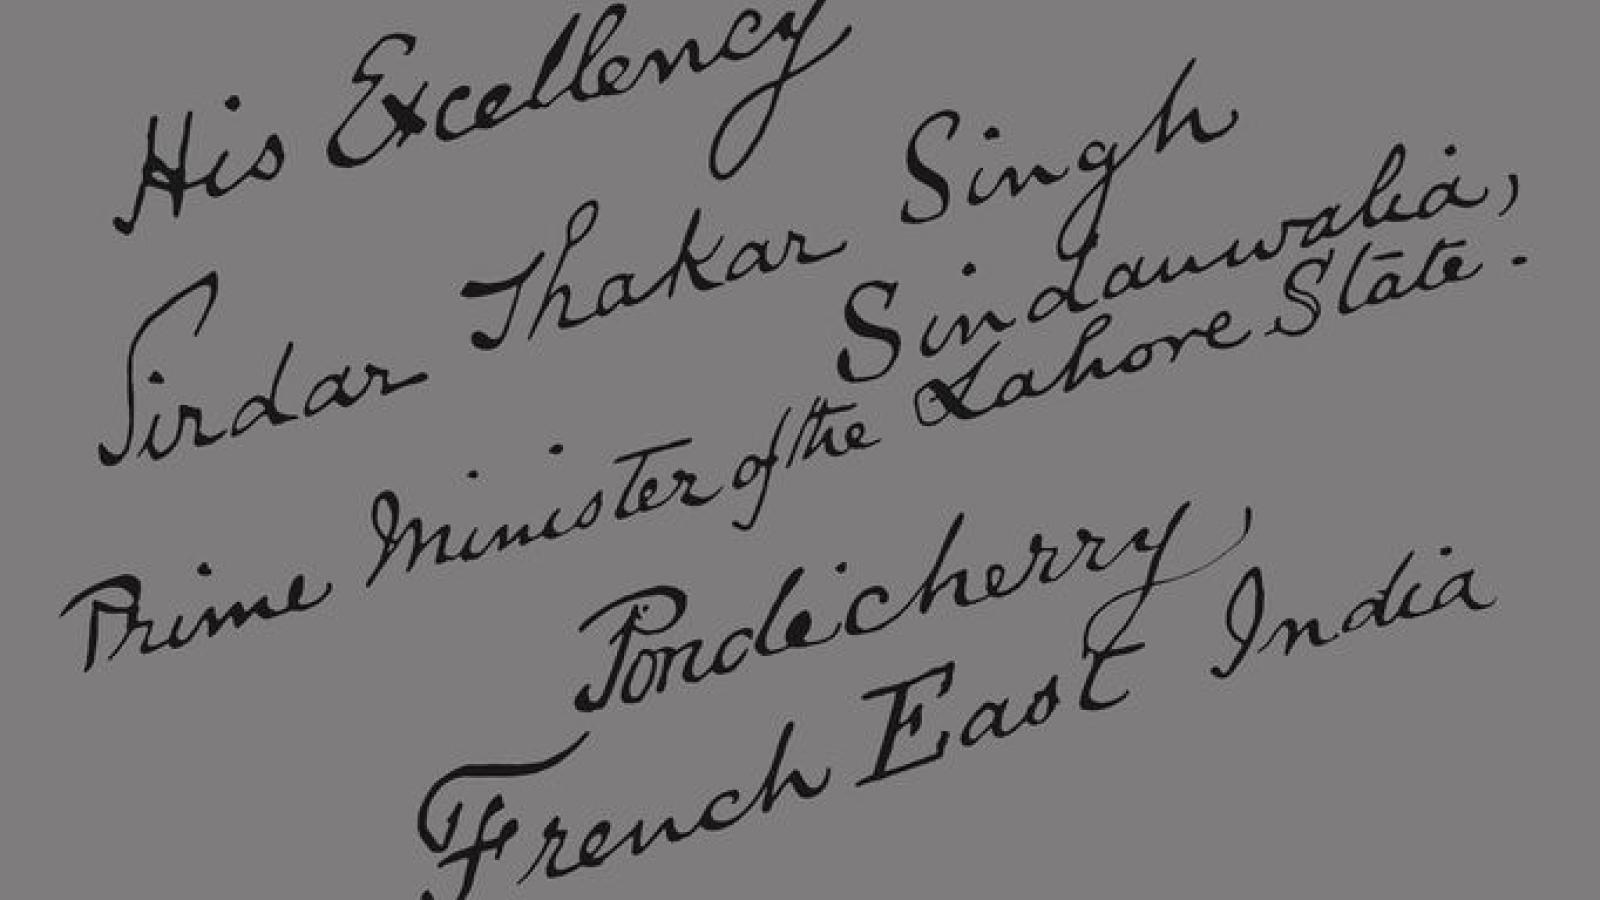 His Excellency
Sirdar Thakar Singh
Sindanwalia,
Prime Minister of the Lahore State.
Pondicherry,
French East India